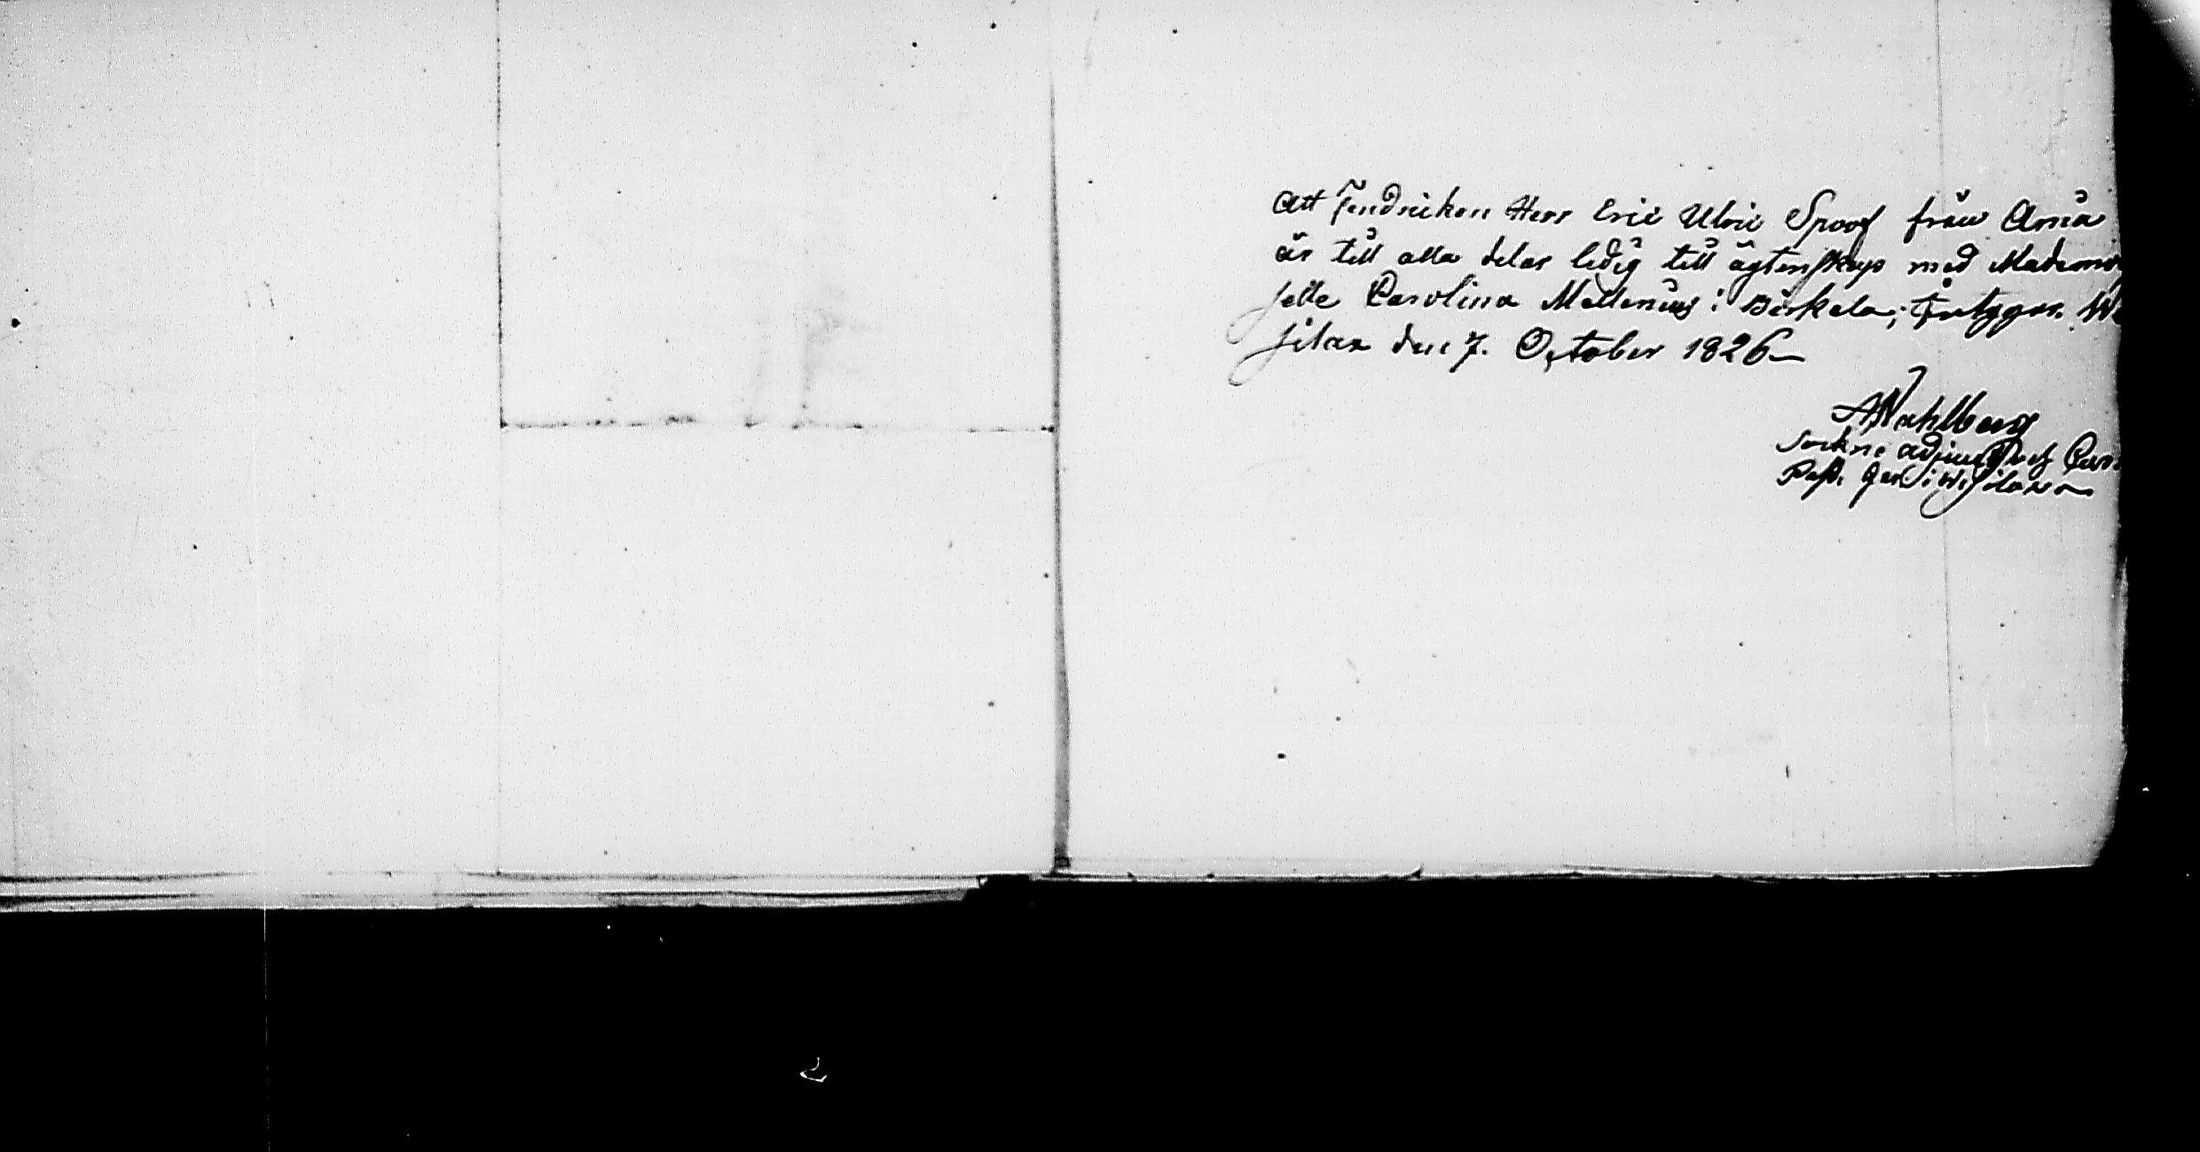 Att Fendricken Herr Eric Ulric Spoof från Arnä
är till alla delar ledig till ägtenskap med Mademoi
selle Carolina Mellenius i Birkala, intygar. We
silax den 7. October 1826
A Wahlberg
Sockne adjunct och
Past. i Wesilax